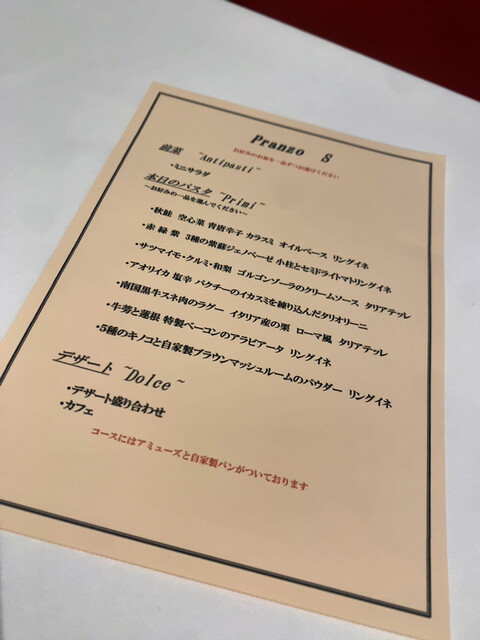 Pranzo S
お好みのお皿を一品ずつお選びください
前菜 ~Antipasti~
・ミニサラダ
本日のパスタ ~Primi~
~お好みの一品を選んでください~
・秋鮭 空心菜 青唐辛子 カラスミ オイルベース リングイネ
・赤 緑 紫 3種の紫蘇ジェノベーゼ 小柱とセミドライトマトリングイネ
・サツマイモ・クルミ・和梨 ゴルゴンゾーラのクリームソース タリアテッレ
・アオリイカ 塩辛 パクチーのイカスミを練り込んだタリオリーニ
・南国黒牛スネ肉のラグー イタリア産の栗 ローマ風 タリアテッレ
・牛蒡と蓮根 特製ベーコンのアラビアータ リングイネ
・5種のキノコと自家製ブラウンマッシュルームのパウダー リングイネ
デザート ~Dolce~
・デザート盛り合わせ
・カフェ
コースにはアミューズと自家製パンがついております